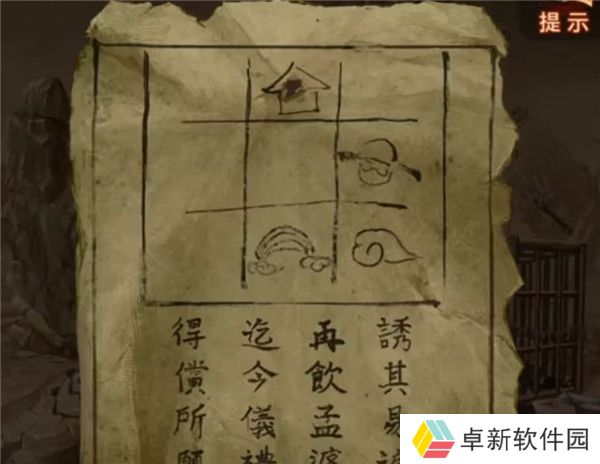 提示
誘其易
再飲孟婆
迄今儀禮
得償所願
卓新软件园